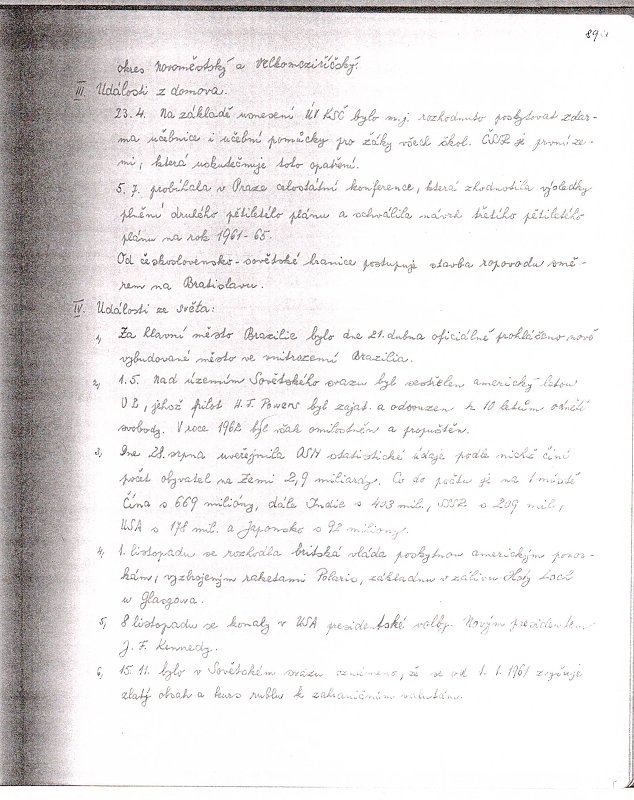 89
okres Novoměstský a Velkomeziříčský.
III Události z domova.
23.4. Na základě usnesení ÚV KSČ bylo m.j. rozhodnuto poskytovat zdar-
ma učebnice i učební pomůcky pro žáky všech škol. ČSSR je první ze-
mí, která uskutečňuje toto opatření.
5.7. probíhala v Praze celostátní konference, která zhodnotila výsledky
plnění druhého pětiletého plánu a schválila návrh třetího pětiletého
plánu na rok 1961-65.
Od československo-sovětské hranice postupuje stavba ropovodu smě-
rem na Bratislavu.
IV. Události ze světa:
1, Za hlavní město Brazilie bylo dne 21. dubna oficiálně prohlášeno nově
vybudované město ve vnitrozemí Brazilia.
2, 1.5. Nad územím Sovětského svazu byl sestřelen americký letoun
U 2, jehož pilot H.F. Powers byl zajat a odsouzen k 10 letům odnětí
svobody. V roce 1962 byl však omilostněn a propuštěn.
3, Dne 28. srpna uveřejnila OSN statistické údaje podle nichž činí
počet obyvatel na Zemi 2,9 miliardy. Co do počtu je na 1 místě
Čína s 669 milióny, dále Indie s 403 mil., SSSR s 209 mil.,
USA s 178 mil. a Japonsko s 92 miliony.
4, 1. listopadu se rozhodla britská vláda poskytnou americkým ponor-
kám, vyzbrojeným raketami Polaris, základnu v zálivu Holy Loch
u Glasgowa.
5, 8 listopadu se konaly v USA presidentské volby. Novým presidentem
J. F. Kennedy.
6, 15.11. bylo v Sovětském svazu oznámeno, že se od 1.1.1961 zvyšuje
zlatý obsah a kurs rublu k zahraničním valutám.